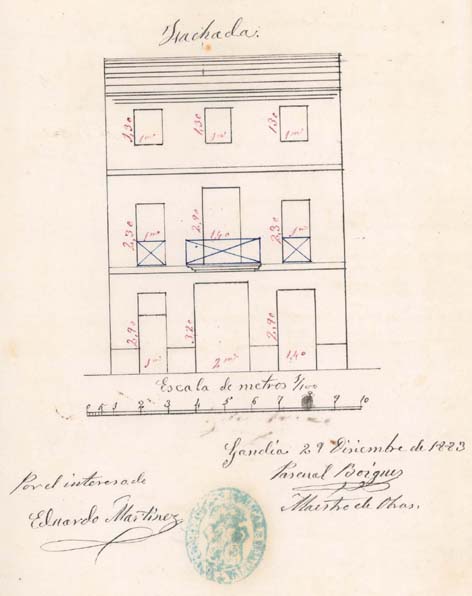 Fachada.
1,30 1,30 1,30
1m 1m 1m
2,30 2,90 2,30
1m 1,40 1m
2,90 3,20 2,90
1m 2m 1,40
Escala de metros 1/100
0 5 1 2 3 4 5 6 7 8 9 10
Gandía 29 Diciembre de 1883
Por el interesado
Pascual Boigues
Eduardo Martinez
Maestro de Obras.